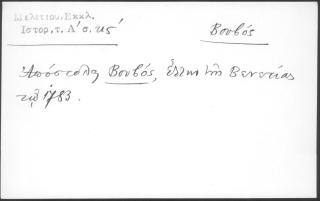 Μελετίου.Εκκλ.
Ιστορ,τ. Α' σ. κς΄
Βουβός
Ἀπόστολος Βουβός, ἐκ τῆς Βενετίας
τῷ 1783.